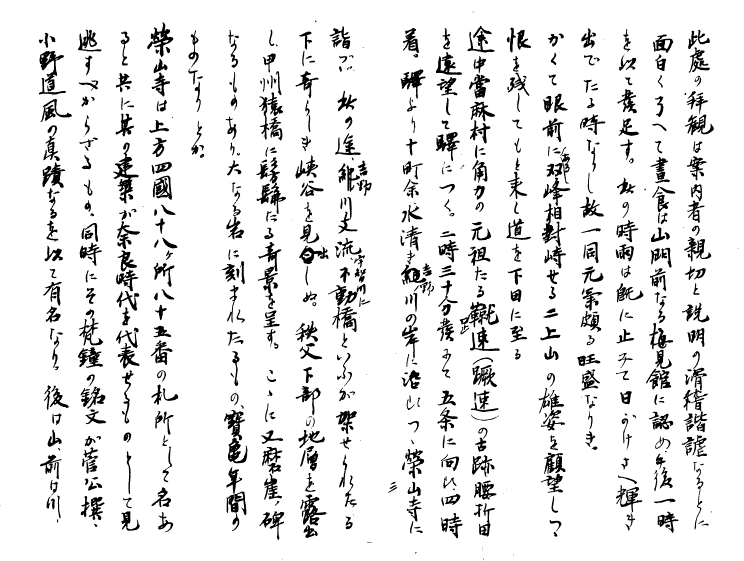 此處の拜觀は案内者の親切と説明の滑稽諧謔なるとに
面白く了へて晝食は山門前なる梅見館に認め午後一時
を以て發足す。秋の時雨は既に止みて日かげさへ輝き
出でたる時なりし故一同元氣頗る旺盛なりき。
かくて眼前に双峰相對峙せる二上山の雄姿を顧望しつゝ
恨を殘してもと來し道を下田に至る
途中當麻村に角力の元祖たる蹴速(蹶速)の古跡腰折田
を遠望して驛につく。二時三十分發にて五条に向ひ四時
着。驛より十町余水清き吉野川の岸に沿ひつゝ榮山寺に
詣づ。秋の途吉野川支流宇智川に不動橋といふが架せられたる
下に奇らしき峽谷を見出しぬ。秩父下部の地層を露出
し甲州猿橋に髣髴たる奇景を呈す。こゝに又磨崖碑
なるものあり。大なる岩に刻まれたるもの、寶龜年間の
ものなりとか。
榮山寺は上方四國八十八ヶ所八十五番の札所として名あ
ると共に其の建築が奈良時代を代表せるものとして見
逃すべからざるもの、同時にその梵鐘の銘文が菅公撰、
小野道風の真蹟なるを以て有名なり。後は山、前は川、
三